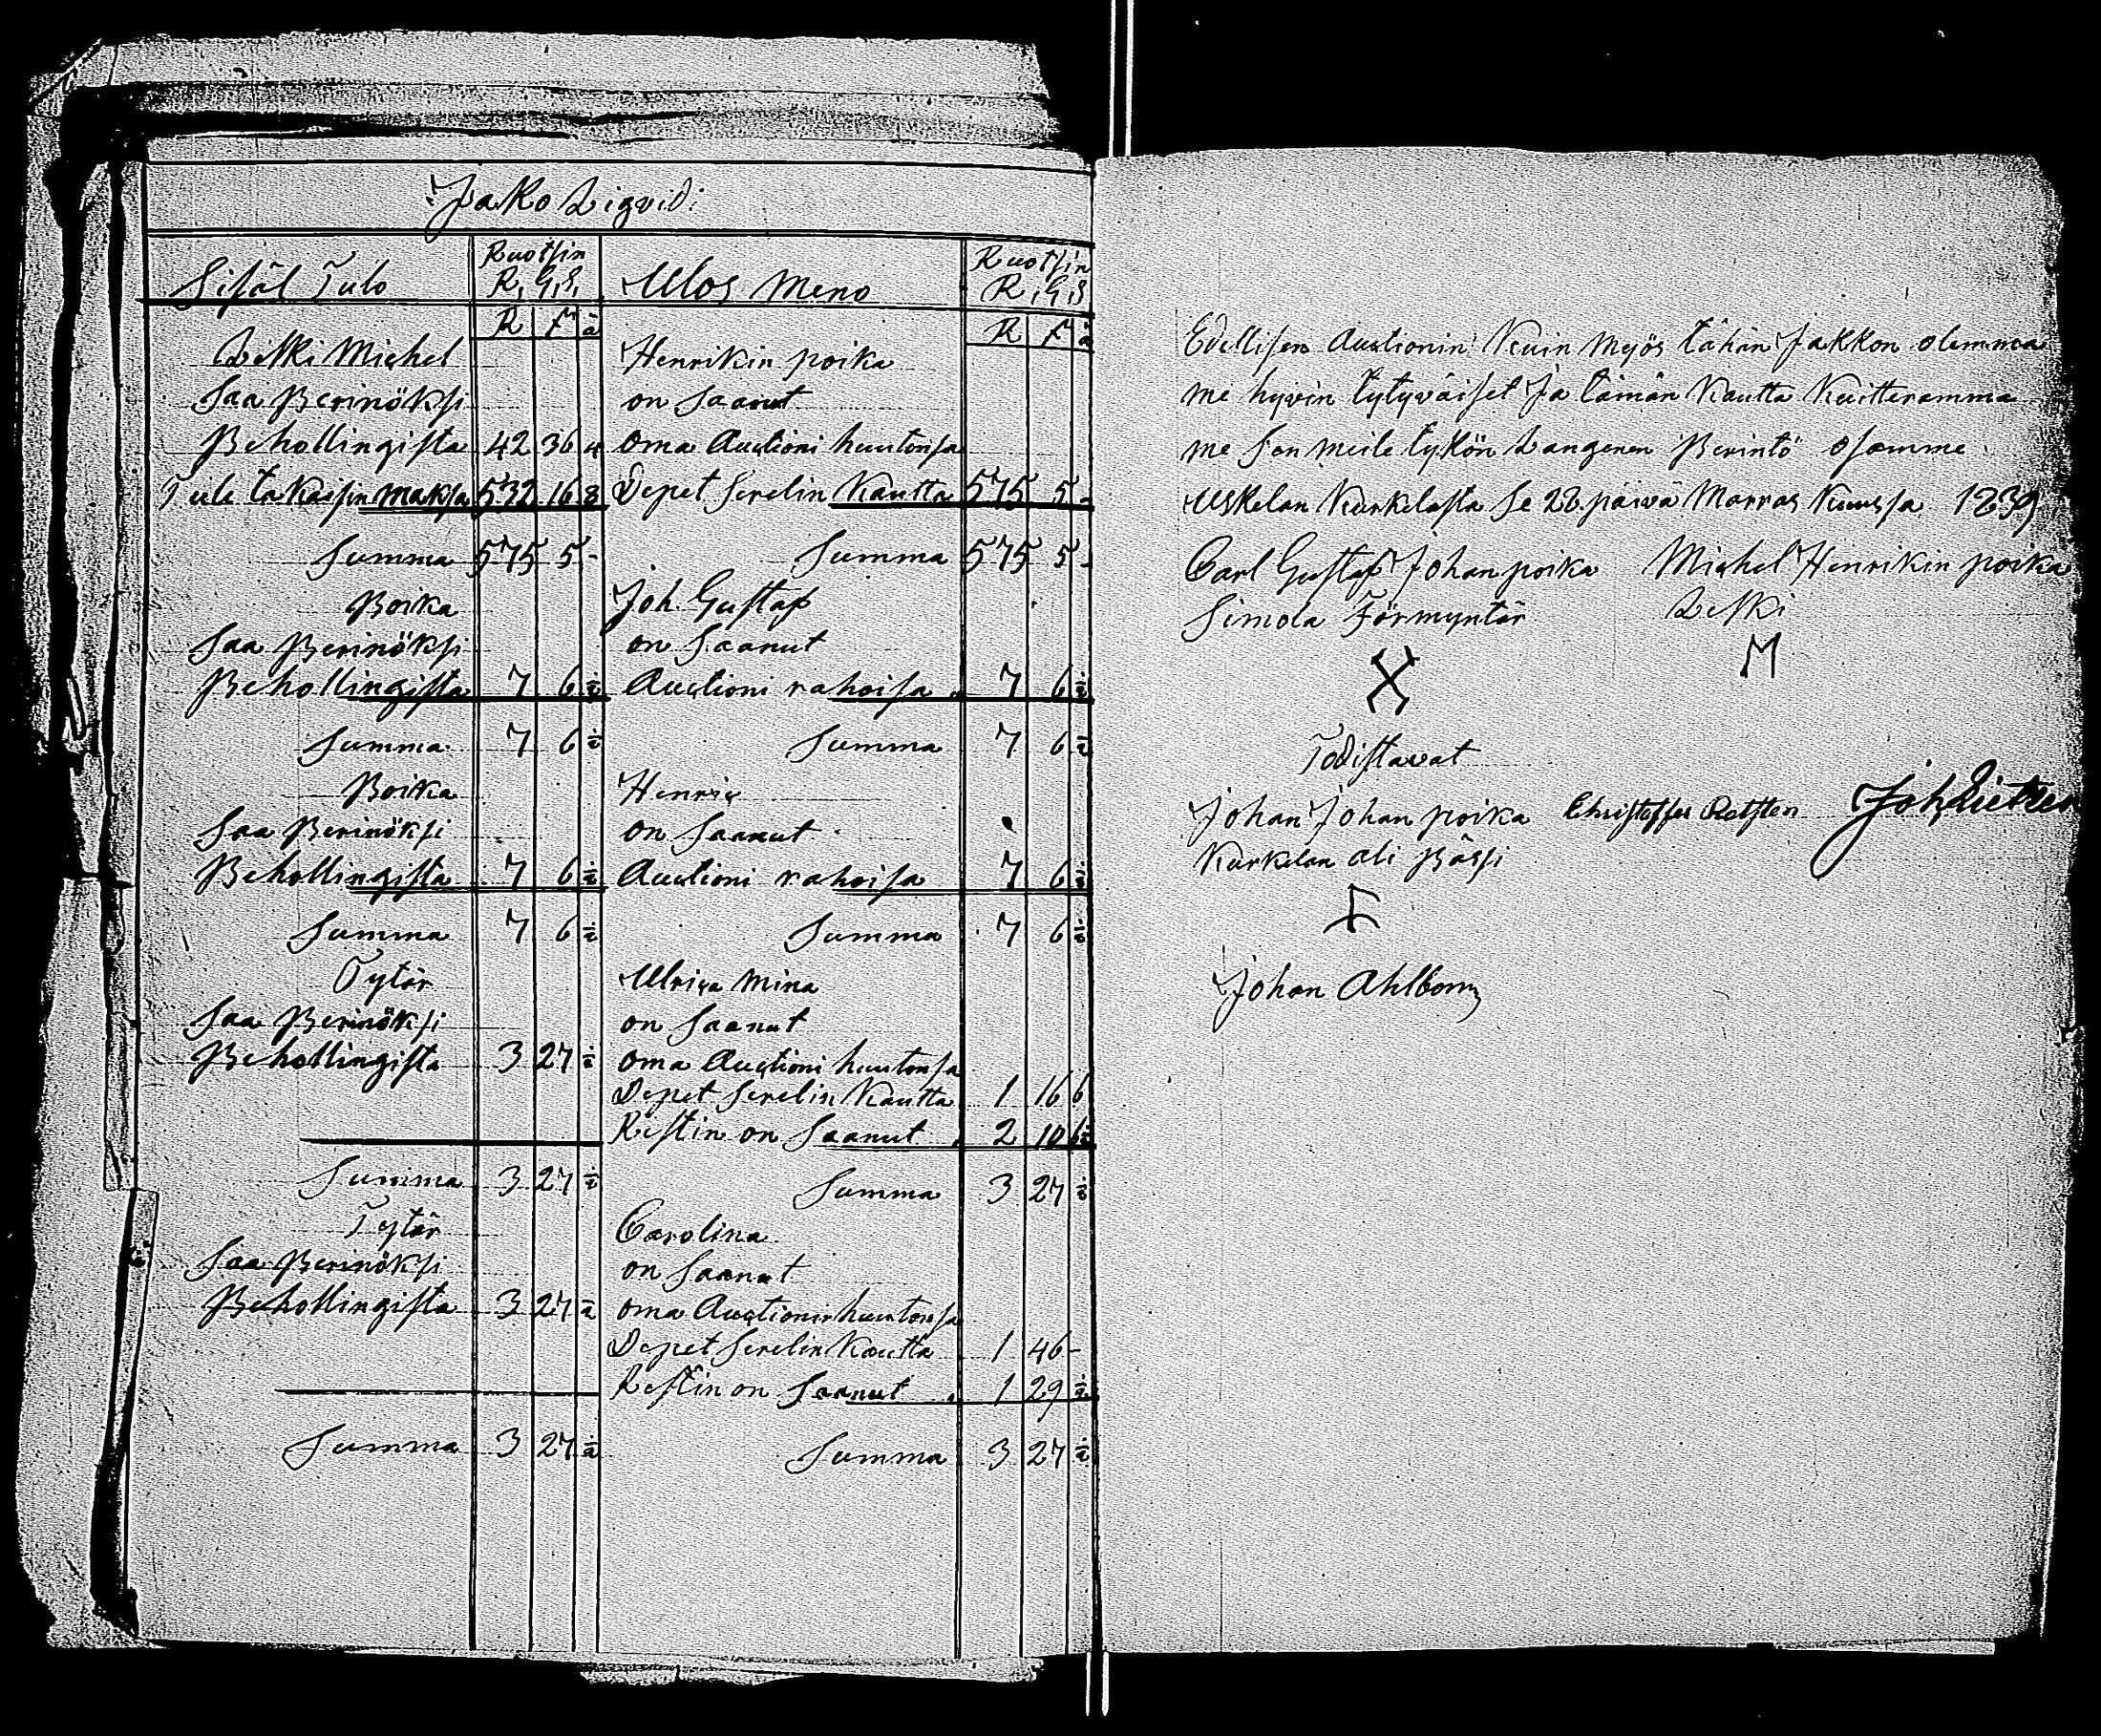 Jako Liqvidi
Sisäl Tulo Ruotsin R, G, S, Ulos Meno Ruotsin R, G, S
R f a R f a
Leski Michel Henrikin poika
Saa Perinöksi on Saanut
Behollingista 42 36 4 oma Auctioni huutonsa
Tule takaisin maksa 532 16 8 Depet Serelin Kautta 575 5 -
Summa 575 5 - Summa 575 5 -
Poika Joh. Gustaf
Saa Perinöksi on Saanut
Behollingista 7 6 ½ Auctioni rahoisa 7 6 ½
Summa 7 6 ½ Summa 7 6 ½
Poika Henric
Saa Perinöksi on Saanut
Behollingista 7 6 ½ Auctioni rahoisa 7 6 ½
Summa 7 6 ½ Summa 7 6 ½
Tytär Ulrica Mina
Saa Perinöksi on Saanut
Behollingista 3 27 ½ oma Auctioni huutonsa
Depet Serelin Kautta 1 16 6
Restin on Saanut 2 10 6½
Summa 3 27 ½ Summa 3 27 ½
Tytär Carolina
Saa Perinöksi on Saanut
Behollingista 3 27 ½ oma Auctionin huutonsa
Depet Serelin Kautta 1 46 -
Restin on Saanut 1 29 ½
Summa 3 27 ½ Summa 3 27 ½
Edellisen Auctionin Kuin Myös tähän Jakkon olemma
me hyvin tytyväiset Ja tämän Kautta Kuitteramma
me Sen meile tykön Langenen Perintö osamme
Uskelan Kurkelasta Se 28 päivä Marras Kuussa 1839
Carl Gustaf Johan poika Michel Henrikin poika
Simola Förmyntär Leski
M
Todistavat
Johan Johan poika Christoffer
Kurkelan ali Pässi
Johan Ahlbom